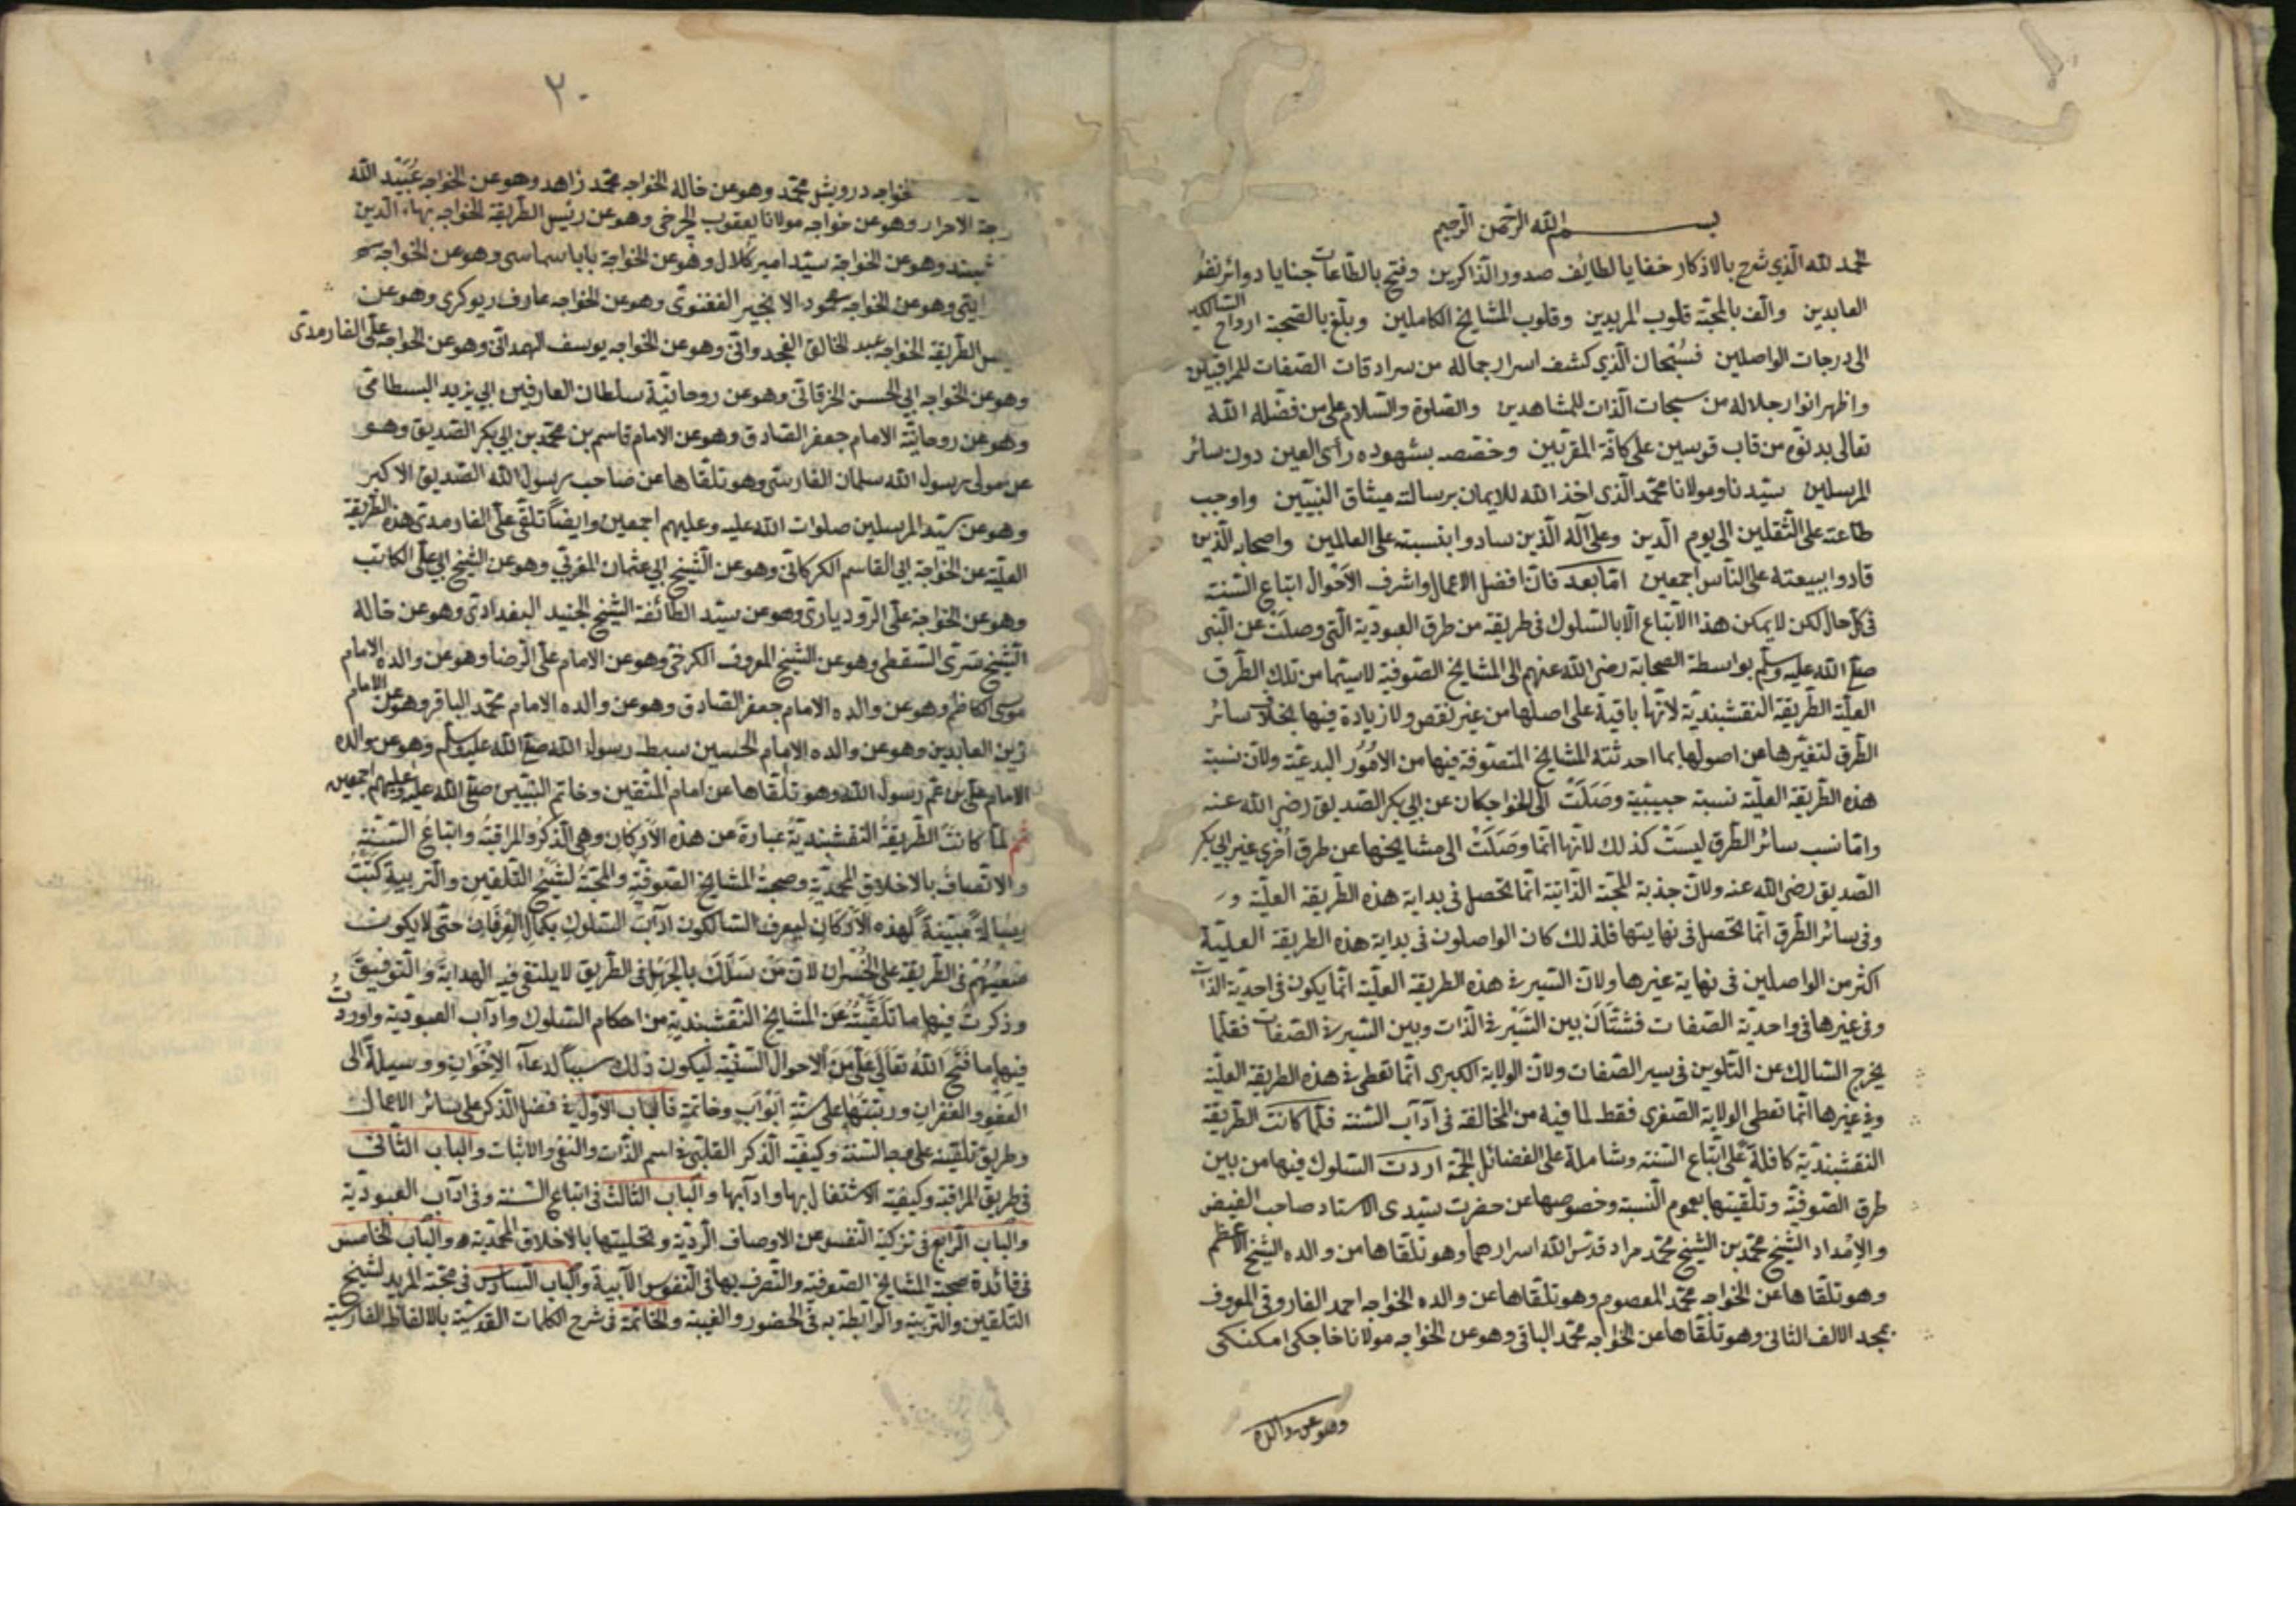 بسم الله الرحمن الرحيم
الحمد لله الذي شرح بالاذكار خفايا لطائف صدور الذاكرين وفتح بالطاعات خبايا دوائر نفوس
العابدين والف بالمحبة قلوب المريدين وقلوب المشايخ الكاملين وبلغ بالصحبة ارواح السالكين
الى درجات الواصلين فسبحان الذي كشف اسرار جماله من سرادقات الصفات للمراقبين
واظهر انوار جلاله من سبحات الذات للمشاهدين والصلوة والسلام على من فضله الله
تعالى بدنوه من قاب قوسين على كافة المقربين وخصصه بشهوده رأى العين دون سائر
المرسلين سيدنا ومولانا محمد الذي اخذ الله للايمان برسالته ميثاق النبيين واوجب
طاعته على الثقلين الى يوم الدين وعلى آله الذين سادوا بنسبته على العالمين واصحابه الذين
قادوا ببيعته على الناس اجمعين اما بعد فان افضل الاعمال واشرف الاحوال اتباع السنة
في كل حال لكن لا يمكن هذا الاتباع الا بالسلوك في طريقة من طرق العبودية التي وصلت عن النبي
صلى الله عليه وسلم بواسطة الصحابة رضى الله عنهم الى المشايخ الصوفية لا سيما من تلك الطرق
العلية الطريقة النقشبندية لانها باقية على اصلها من غير نقص ولا زيادة فيها بخلاف سائر
الطرق لتغيرها عن اصولها بما احدثته المشايخ المتصوفة فيها من الامور البدعية ولان نسبة
هذه الطريقة العلية نسبة حبيبية وصلت الى الخواجكان عن ابي بكر الصديق رضى الله عنه
واما نسب سائر الطرق ليست كذلك لانها انما وصلت الى مشايخها عن طرق اخرى غير ابي بكر
الصديق رضى الله عنه ولان جذبة المحبة الذاتية انما تحصل في بداية هذه الطريقة العلية و
وفي سائر الطرق انما تحصل في نهايتها فلذلك كان الواصلون في بداية هذه الطريقة العلية
اكثر من الواصلين في نهاية غيرها ولان السير في هذه الطريقة العلية انما يكون في احدية الذات
وفي غيرها في واحدية الصفات فشتان بين السير في الذات وبين السير في الصفات فقلما
يخرج السالك عن التلوين في سير الصفات ولان الولاية الكبرى انما تعطى في هذه الطريقة العلية
وفي غيرها انما تعطى الولاية الصغرى فقط لما فيه من المخالفة في آداب السنة فلما كانت الطريقة
النقشبندية كافلة على اتباع السنة وشاملة على الفضائل الجمة اردت السلوك فيها من بين
طرق الصوفية وتلقيتها بعموم النسبة وخصوصها عن حضرت سيدى الاستاد صاحب الفيض
والامداد الشيخ محمد بن الشيخ محمد مراد قدس الله اسرارهما وهو تلقاها من والده الشيخ الاعظم
وهو تلقاها عن الخواجه محمد المعصوم وهو تلقاها عن والده الخواجه احمد الفاروقي المعروف
بمجدد الالف الثانى وهو تلقاها عن الخواجه محمد الباقى وهو عن الخواجه مولانا خاجكى امكنكى
وهو عن والده
٢٠
الخواجه درويش محمد وهو عن خاله الخواجه محمد زاهد وهو عن الخواجه عبيد الله
الاحرار وهو عن خواجه مولانا يعقوب الچرخى وهو عن رئيس الطريقة الخواجه بهاء الدين
وهو عن الخواجه سيد امير كلال وهو عن الخواجه بابا سماسى وهو عن الخواجه
وهو عن الخواجه محمود الانجير الفغنوى وهو عن الخواجه عارف ريوكرى وهو عن
الطريقة الخواجه عبد الخالق الغجدوانى وهو عن الخواجه يوسف الهمدانى وهو عن الخواجه على الفارمدى
وهو عن الخواجه ابي الحسن الخرقانى وهو عن روحانية سلطان العارفين ابي يزيد البسطامى
وهو عن روحانية الامام جعفر الصادق وهو عن الامام قاسم بن محمد بن ابي بكر الصديق وهو
عن مولى رسول الله سلمان الفارسى وهو تلقاها عن صاحب رسول الله الصديق الاكبر
وهو عن سيد المرسلين صلوات الله عليه وعليهم اجمعين وايضا تلقى على الفارمدى هذه الطريقة
العلية عن الخواجه ابي القاسم الكركانى وهو عن الشيخ ابي عثمان المغربي وهو عن الشيخ ابي على الكاتب
وهو عن الخواجه على الرودبارى وهو عن سيد الطائفة الشيخ الجنيد البغدادى وهو عن خاله
الشيخ سرى السقطى وهو عن الشيخ المعروف الكرخى وهو عن الامام على الرضا وهو عن والده الامام
موسى الكاظم وهو عن والده الامام جعفر الصادق وهو عن والده الامام محمد الباقر وهو عن الامام
زين العابدين وهو عن والده الامام الحسين سبط رسول الله صلى الله عليه وسلم وهو عن والده
الامام على بن عم رسول الله وهو تلقاها عن امام المتقين وخاتم النبيين صلى الله عليه وعليهم اجمعين
ثم لما كانت الطريقة النقشبندية عبارة عن هذه الاركان وهي الذكر والمراقبة واتباع السنة
والاتصاف بالاخلاق المحمدية وصحبة المشايخ الصوفية والمحبة لشيخ التلقين والتربية كتبت
رسالة مبينة لهذه الاركان ليعرف السالكون آداب السلوك بكمال العرفان حتى لا يكون
سعيهم في الطريقة على الخسران لان من سلك بالجهل في الطريق لا يلتقى فيه الهداية والتوفيق
وذكرت فيها ما تلقيته عن المشايخ النقشبندية من احكام السلوك وآداب العبودية واوردت
فيها ما فتح الله تعالى على من الاحوال السنية ليكون ذلك سببا لدعاء الاخوان ووسيلة الى
العفو والغفران ورتبتها على ستة ابواب وخاتمة فالباب الاول في فضل الذكر على سائر الاعمال
وطريق تلقينه على وجه السنة وكيفية الذكر القلبى في اسم الذات والنفى والاثبات والباب الثانى
في طريق المراقبة وكيفية الاشتغال بها وآدابها والباب الثالث في اتباع السنة وفي آداب العبودية
والباب الرابع في تزكية النفس عن الاوصاف الردية وتحليتها بالاخلاق المحمدية والباب الخامس
في فائدة صحبة المشايخ الصوفية والتصرف بها في النفوس الآبية والباب السادس في محبة المريد لشيخ
التلقين والتربية والرابطة به في الحضور والغيبة والخاتمة في شرح الكلمات القدسية بالالفاظ الفارسية